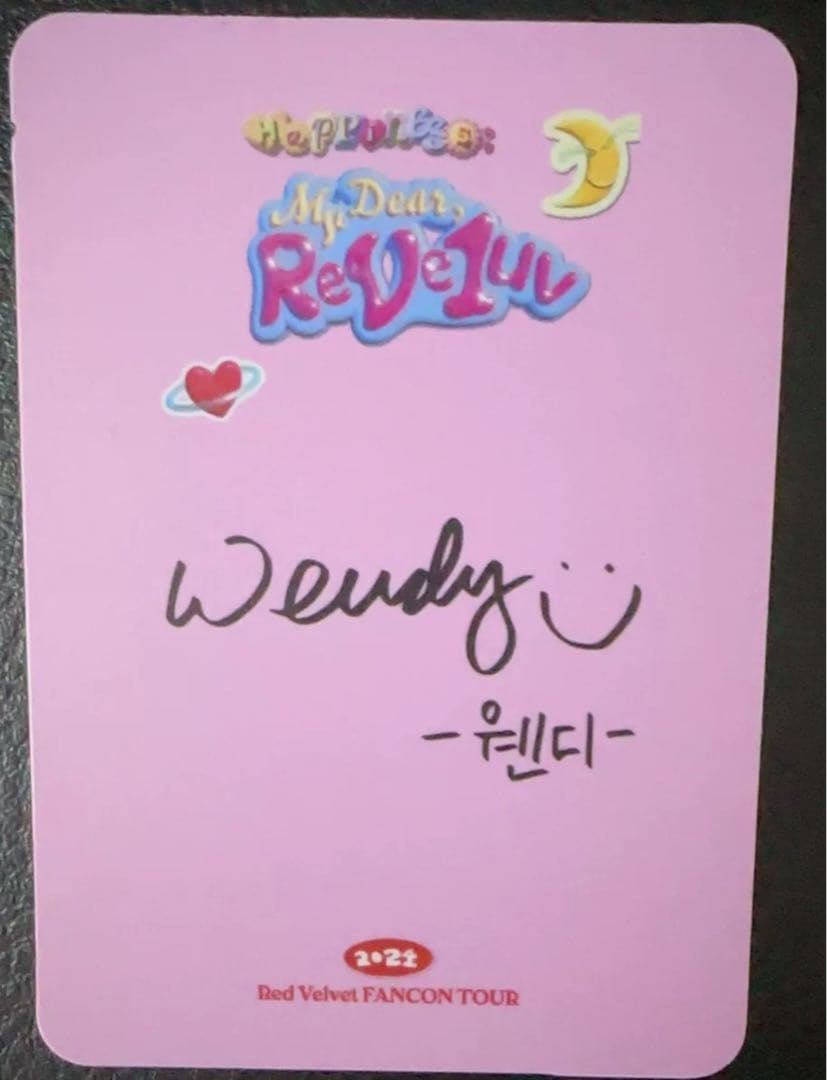 HAPPINESS:
My Dear,
ReVe1uv
Wendy
-웬디-
2024
Red Velvet FANCON TOUR